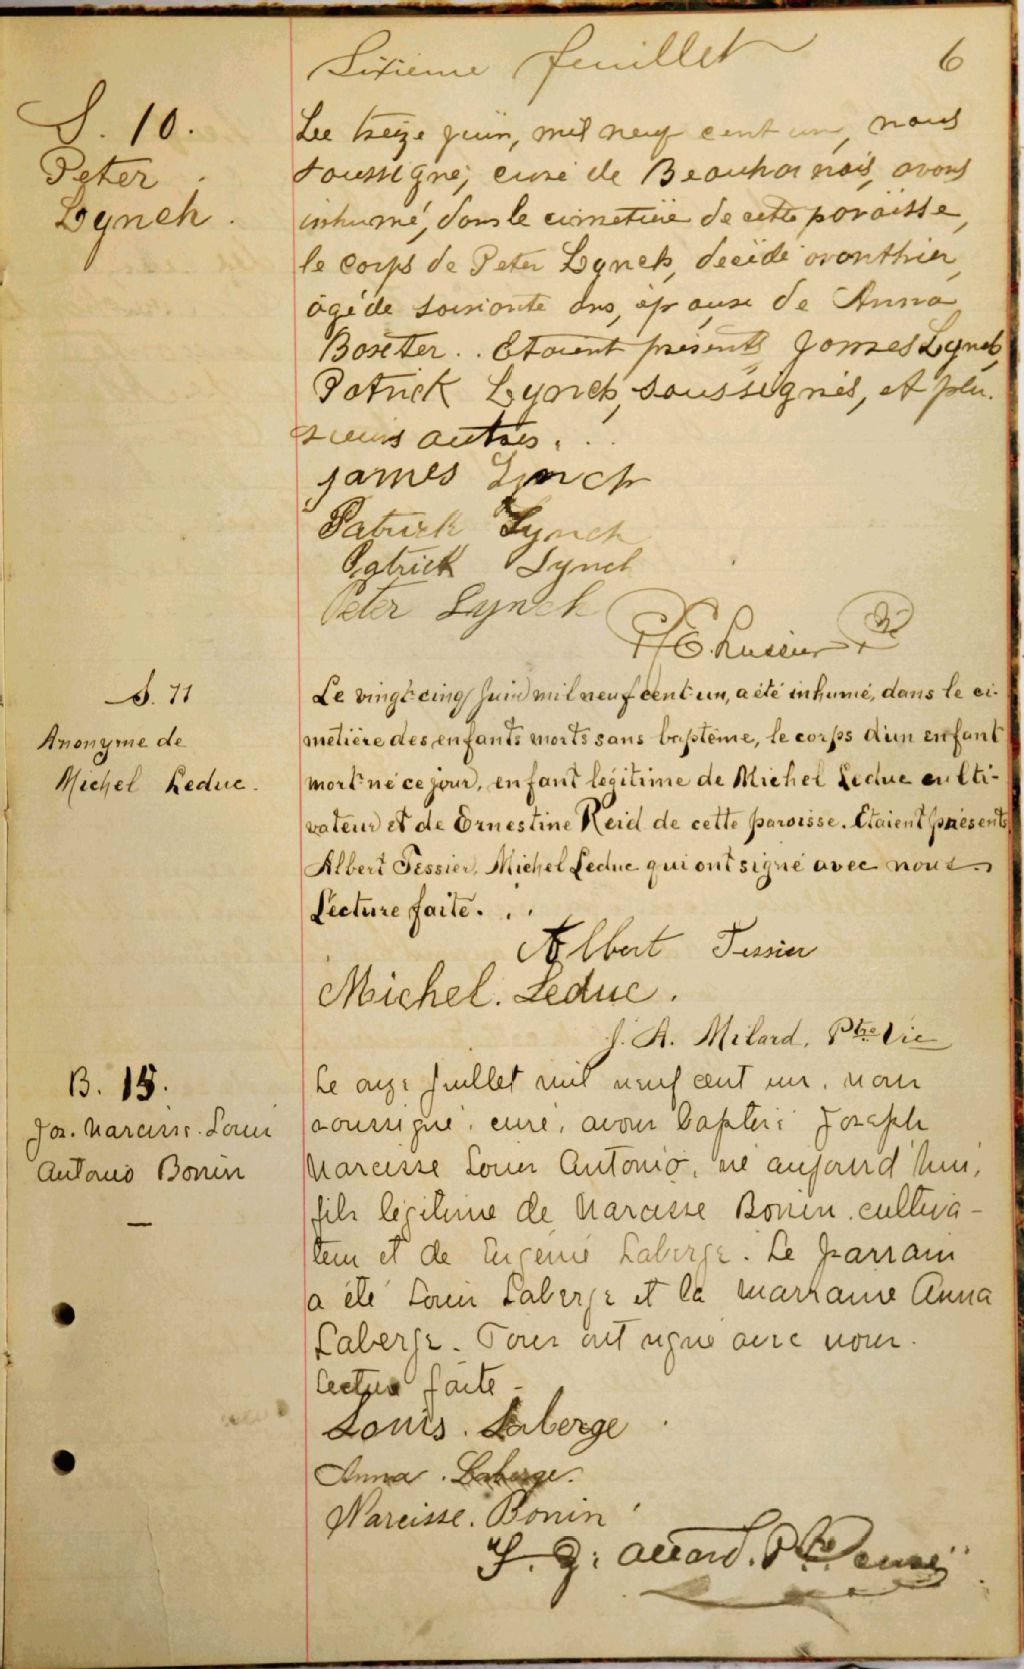 Sixieme feuillet 6
S. 10.
Peter
Lynch.
Le treize juin, mil neuf cent un, nous
soussigné, curé de Beauharnois, avons
inhumé, dans le cimetière de cette paroisse,
le corps de Peter Lynch, décédé avanthier,
âgé de soixante ans, époux de Anna
Boxeter.. Etaient présents James Lynch,
Patrick Lynch, soussignés, et plu.
sieurs autres...
James Lynch
Patrick Lynch
Patrick Lynch
Peter Lynch
P/E Lussier
S. 11
Anonyme de
Michel Leduc.
Le vingt-cinq Juin mil neuf cent-un, a été inhumé, dans le ci-
metière des enfants morts sans baptême, le corps d'un enfant
mort-né ce jour, enfant légitime de Michel Leduc culti-
vateur et de Ernestine Reid de cette paroisse. Etaient présents
Albert Tessier, Michel Leduc qui ont signé avec nous.
Lecture faite...
Albert Tessier
Michel. Leduc.
J. A. Milard, Ptre Vic
B. 15.
Jos. Narcisse. Louis
Antonio Bonin
Le onze Juillet mil neuf cent un, nous
soussigné, curé, avons baptisé Joseph
Narcisse Louis Antonio, né aujourd'hui,
fils légitime de Narcisse Bonin, cultiva-
teur et de Eugénie Laberge. Le parrain
a été Louis Laberge et la marraine Anna
Laberge. Tous ont signé avec nous.
Lecture faite -
Louis. Laberge
Anna. Laberge.
Narcisse. Bonin
Ptre curé